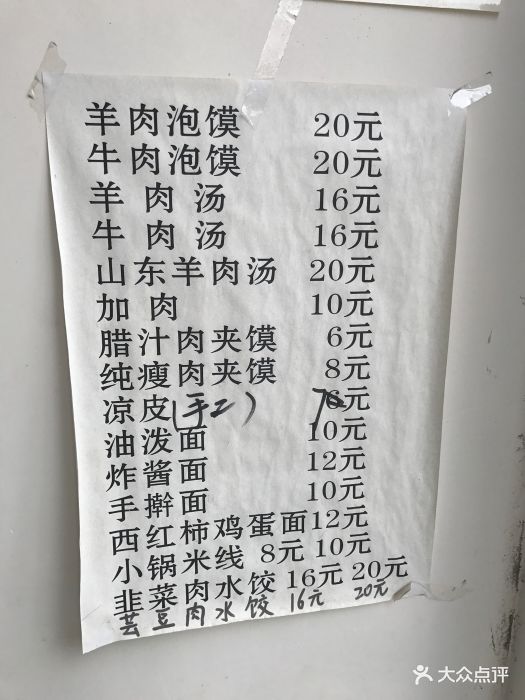 羊肉泡馍 20元
牛肉泡馍 20元
羊肉汤 16元
牛肉汤 16元
山东羊肉汤 20元
加肉 10元
腊汁肉夹馍 6元
纯瘦肉夹馍 8元
凉皮(手工) 7元
油泼面 10元
炸酱面 12元
手擀面 10元
西红柿鸡蛋面 12元
小锅米线 8元 10元
韭菜肉水饺 16元 20元
芸豆肉水饺 16元 20元
大众点评